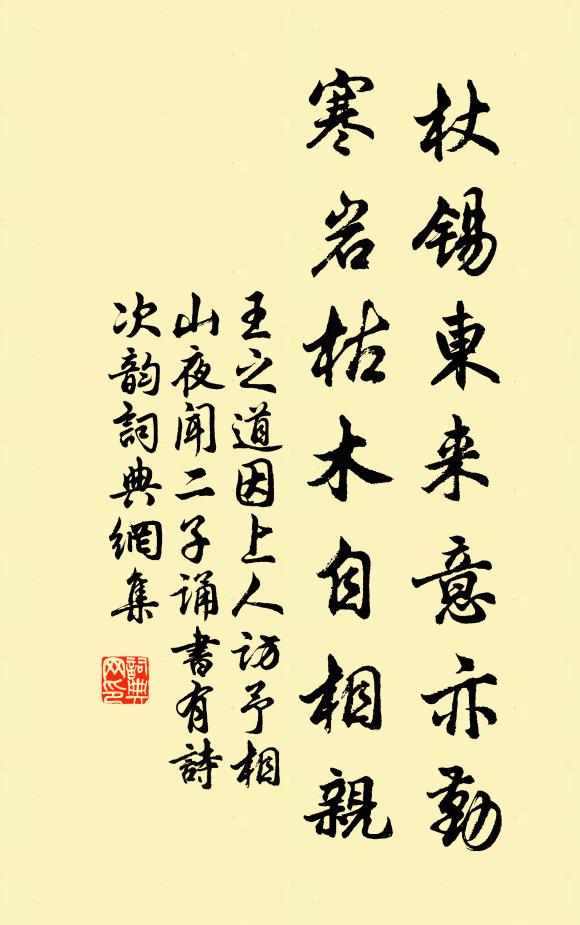 杖錫東来意亦勤
寒岩枯木自相親
王之道因上人訪予相
山夜聞二子誦書有詩
次韵詞典網集
詞典网印